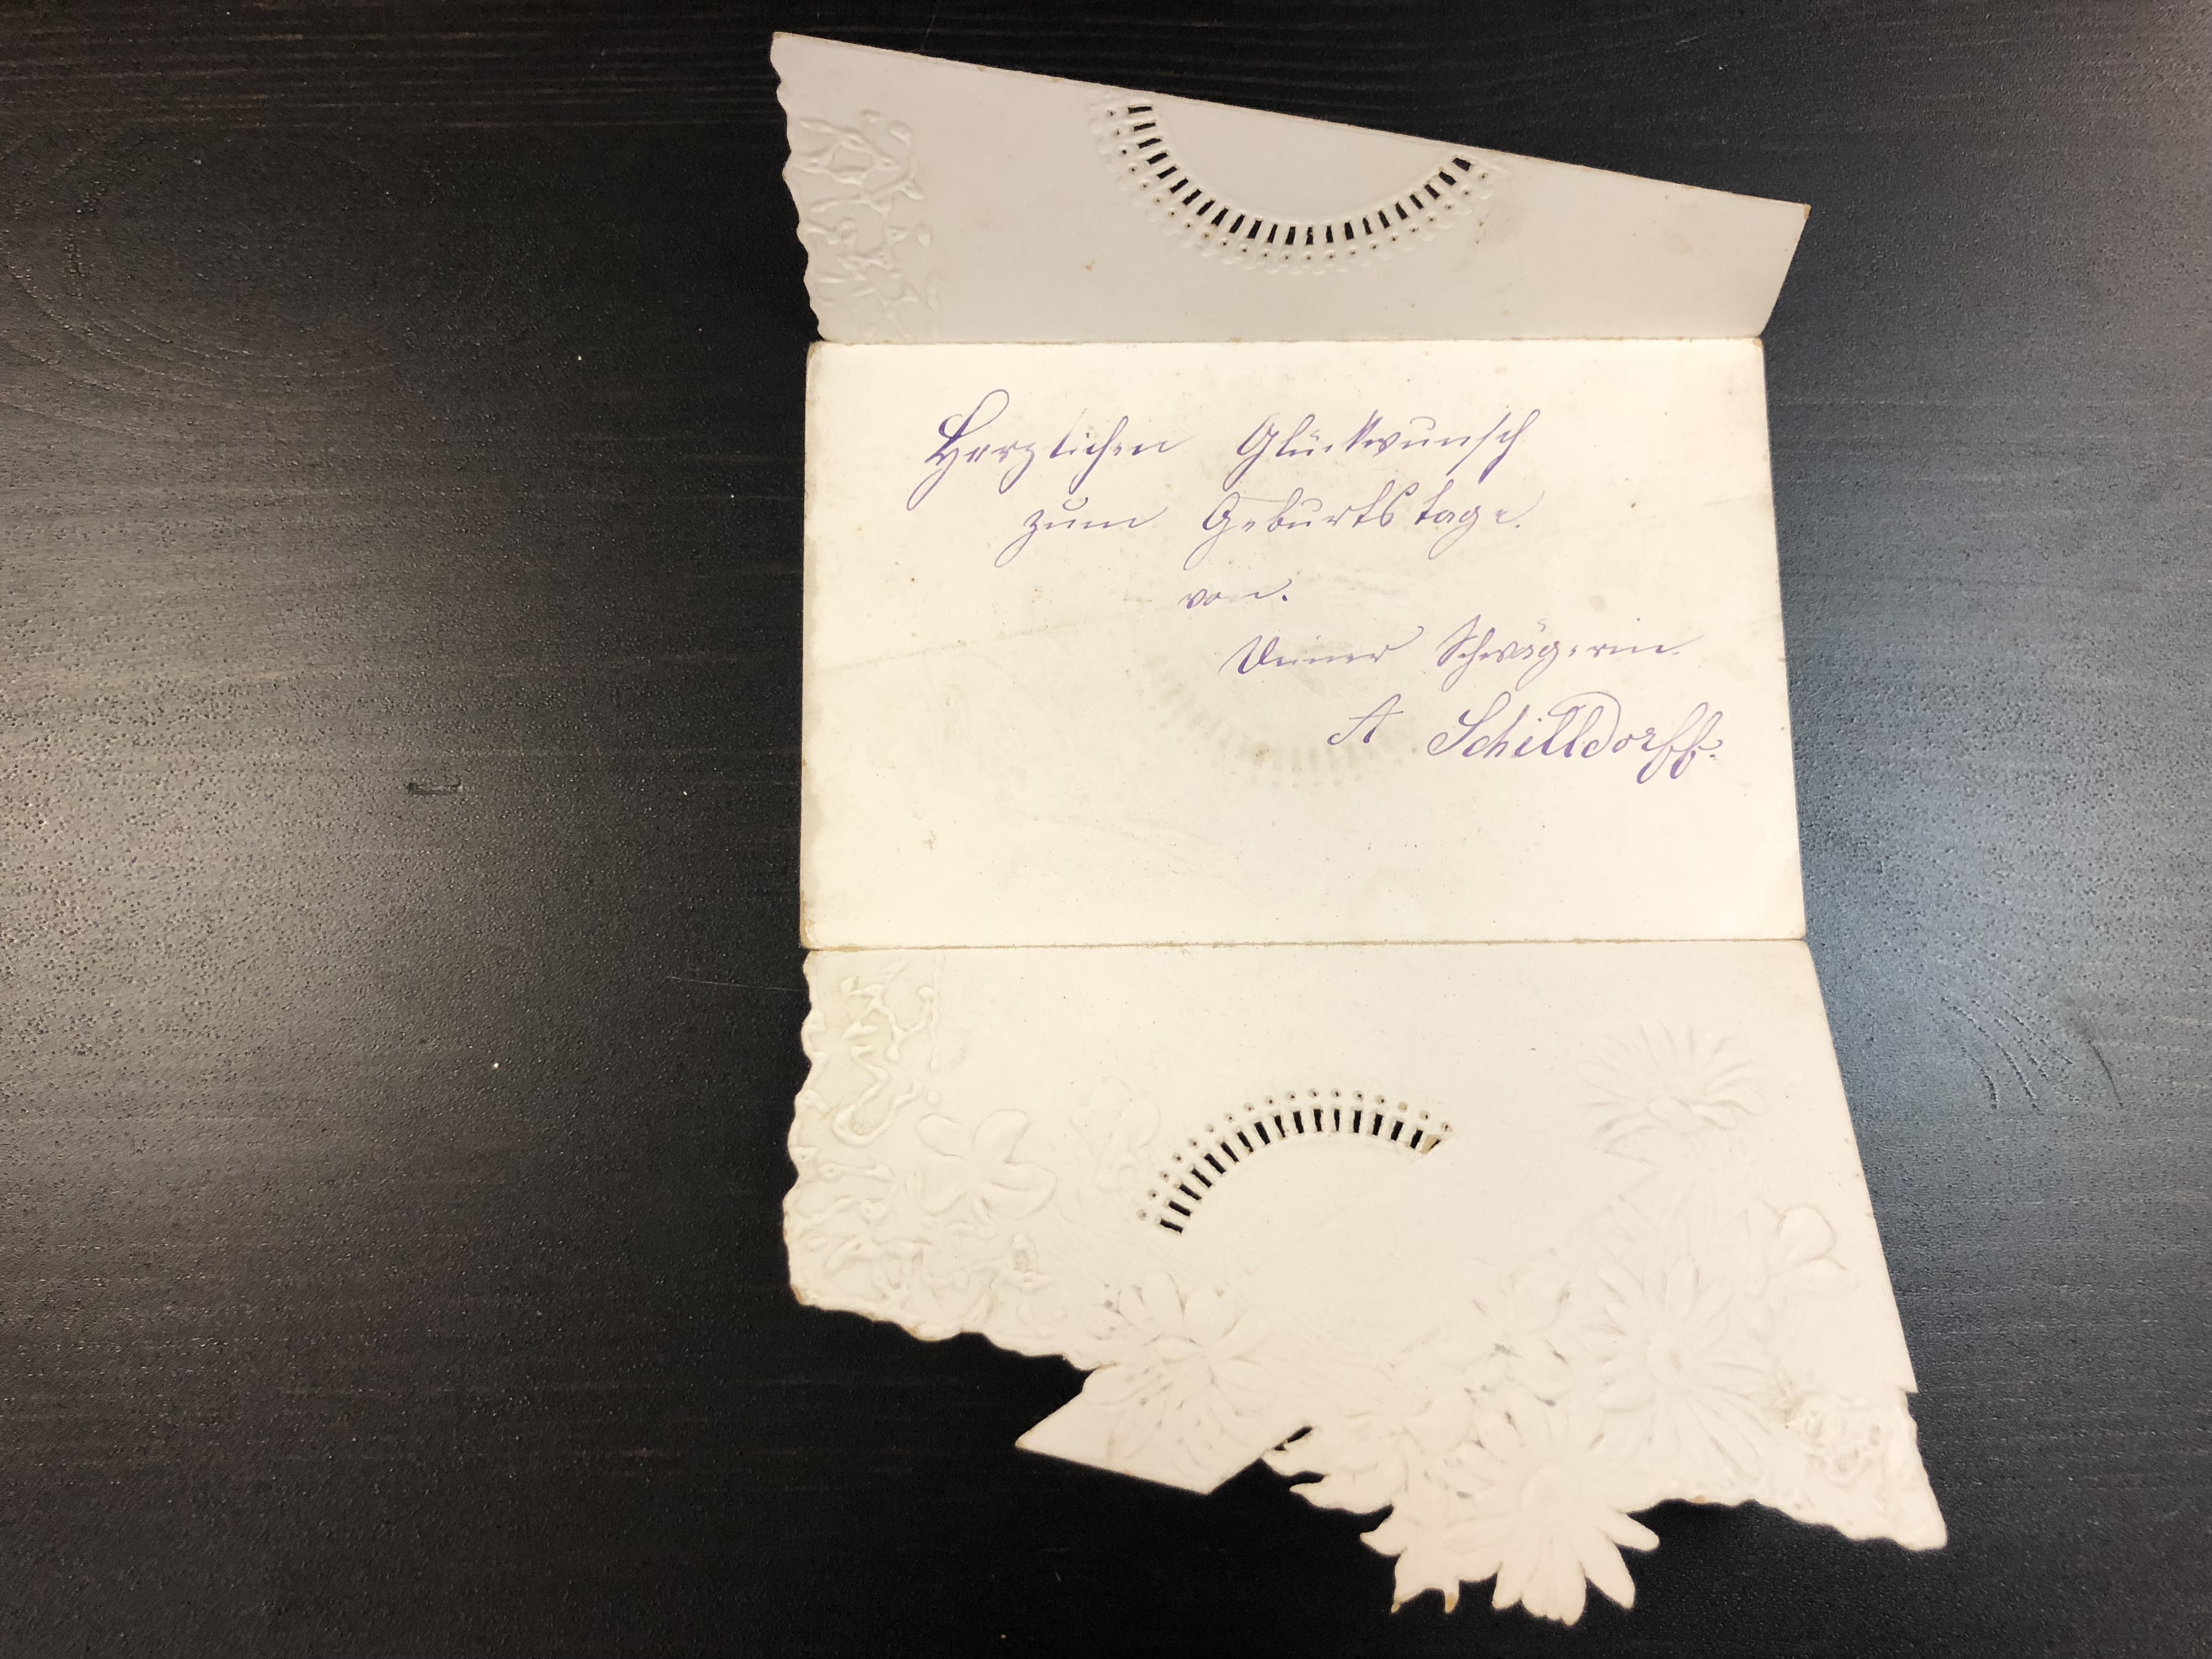 Herzlichen Glückwunsch
zum Geburtstage.
von.
Deiner Schwägerin.
A Schilldorff.